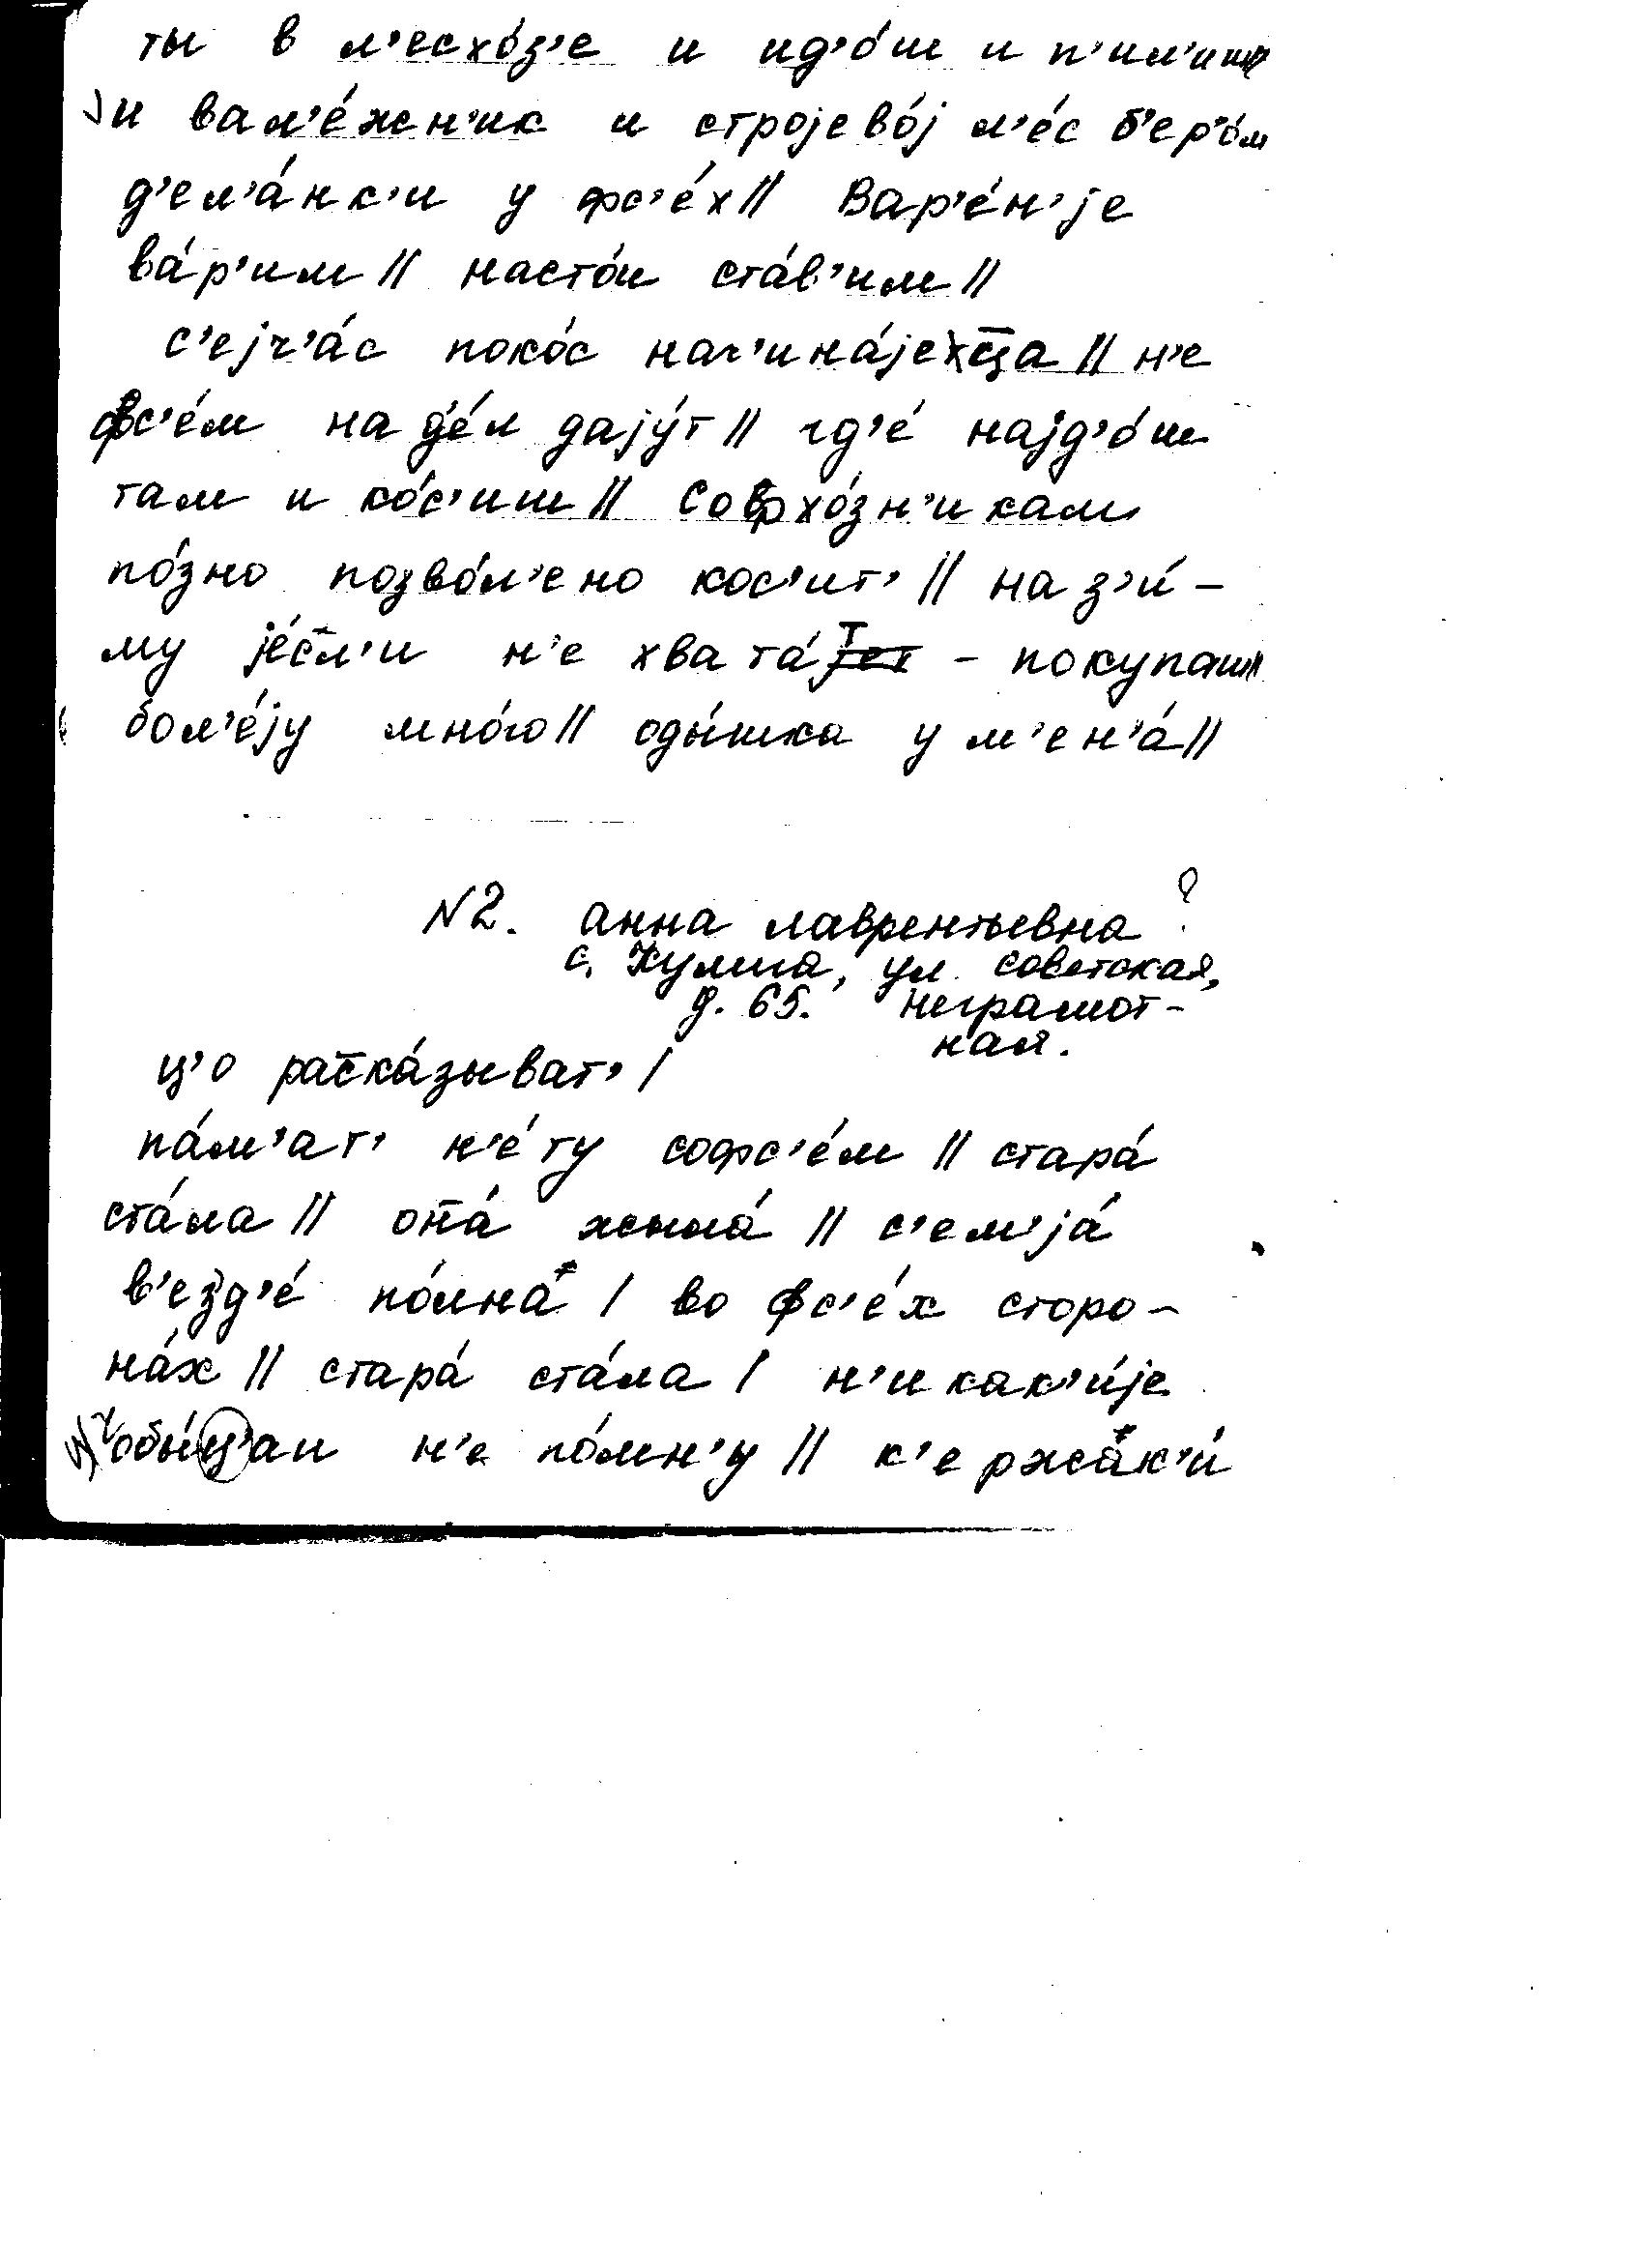 ты в л'есхо́з'е и ид'о́ш и п'ил'иш
и вал'е́жн'ик и строjево́j л'е́с б'ер'о́м
д'ел'а́нк'и у фс'е́х // Вар'е́н'jе
ва́р'им // насто́и ста́в'им //
с'еjч'а́с поко́с нач'ина́jеца // н'е
фс'е́м наде́л даjу́т // гд'е́ наjд'о́ш
там и ко́с'иш // Софхо́зн'икам
по́зно позво́л'ено кос'ит' // на з'и́-
му jе́сл'и н'е хвата́т - покупаш
бол'е́jу мно́го // оды́шка у м'ен'а́ //
N2. анна лаврентьевна ?
с. Кулига, ул. советская,
д. 65. неграмот-
ная.
ц'о раска́зыват' /
па́м'ат' н'е́ту софс'е́м // стара́
ста́ла // одна́ жыла́ // с'ем'jа́
в'езд'е́ по́лна /  во фс'е́х сторо-
на́х // стара́ ста́ла / н'икак'и́jе
обы́ц'аи н'е по́мн'у // к'ержак'и́